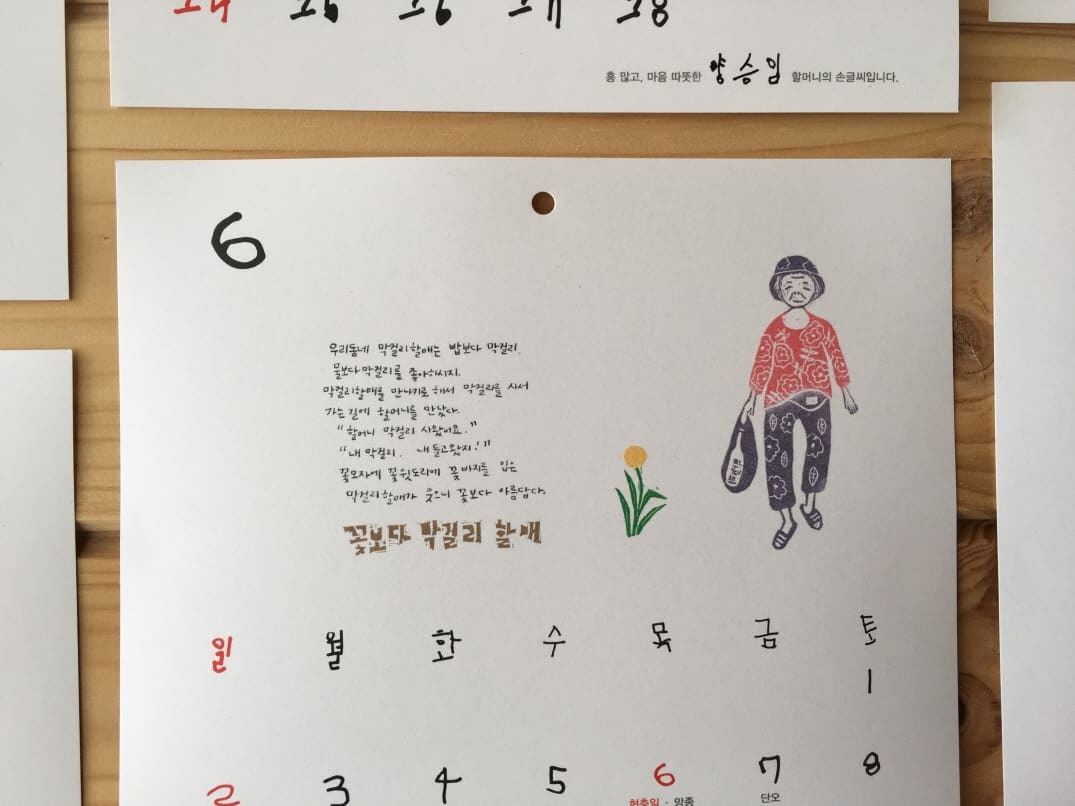 24 25 26 27 28
흥 많고, 마음 따뜻한 양승임 할머니의 손글씨입니다.
6
우리동네 막걸리할매는 밥보다 막걸리,
물보다 막걸리를 좋아하시지.
막걸리할매를 만나기로 해서 막걸리를 사서
가는길에 할머니를 만났다.
"할머니 막걸리 사왔어요."
"내 막걸리. 내 들고왔지!"
꽃모자에 꽃윗도리에 꽃바지를 입은
막걸리할매가 웃으니 꽃보다 아름답다.
꽃보다 막걸리 할매
일 월 화 수 목 금 토
1
2 3 4 5 6 7 8
현충일 · 망종 단오